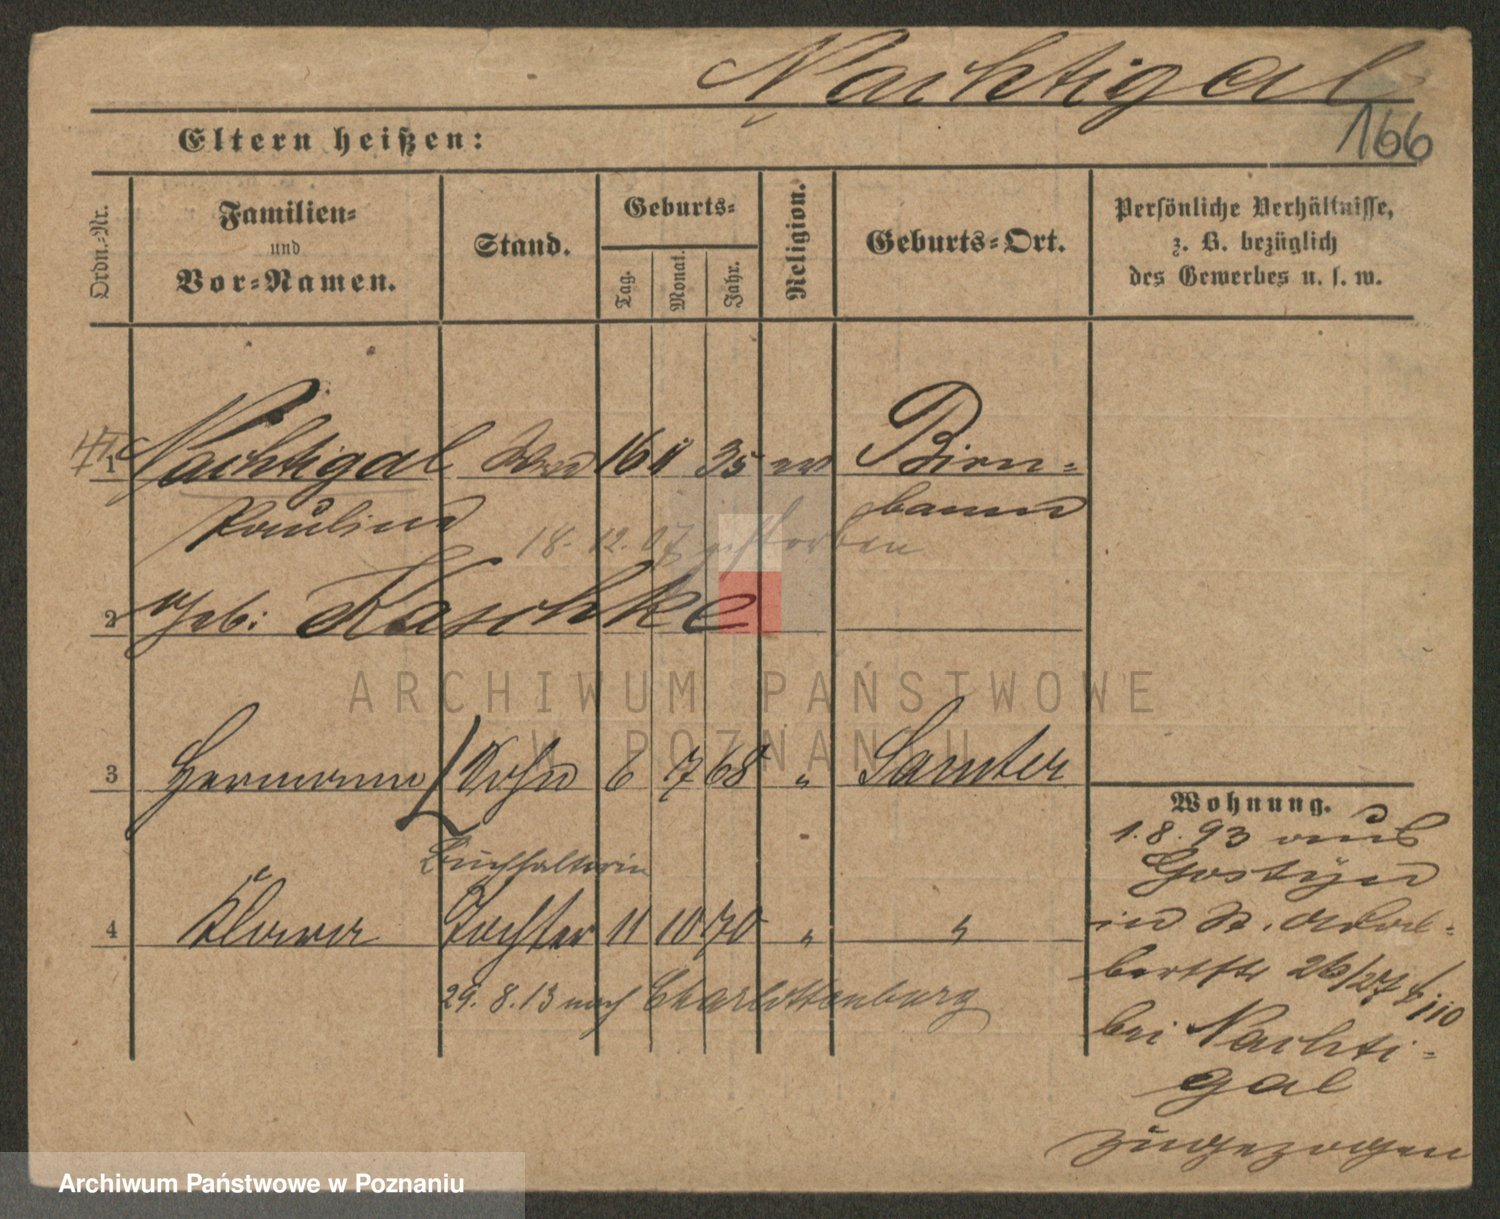 Nachtigal
166
Eltern heißen:
Ordn.-Nr.
Familien-
und
Vor-Namen.
Stand.
Geburts-
Tag.
Monat.
Jahr.
Religion.
Geburts-Ort.
Persönliche Verhältnisse,
z. B. bezüglich
des Gewerbes u. s. w.
1 Nachtigal 16 11 35 ev Birn-
Pauline baum
18. 12. 07 gestorben
2 geb: Kaschke
ARCHIWUM PAŃSTWOWE
W POZNANIU
3 Hermann Sohn 6 7 68 " Samter
Wohnung.
1. 8. 93 aus
Gostyn
in St. Adal-
bertstr 26/27
bei Nachti-
gal
zugezogen
Buchhalterin
4 Klara Tochter 11 10 70 " "
29. 8. 13 nach Charlottenburg
Archiwum Państwowe w Poznaniu